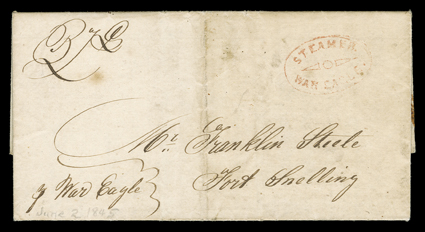 STEAMER
WAR EAGLE
Mr. Franklin Steele
Fort Snelling
p War Eagle
June 2 1845